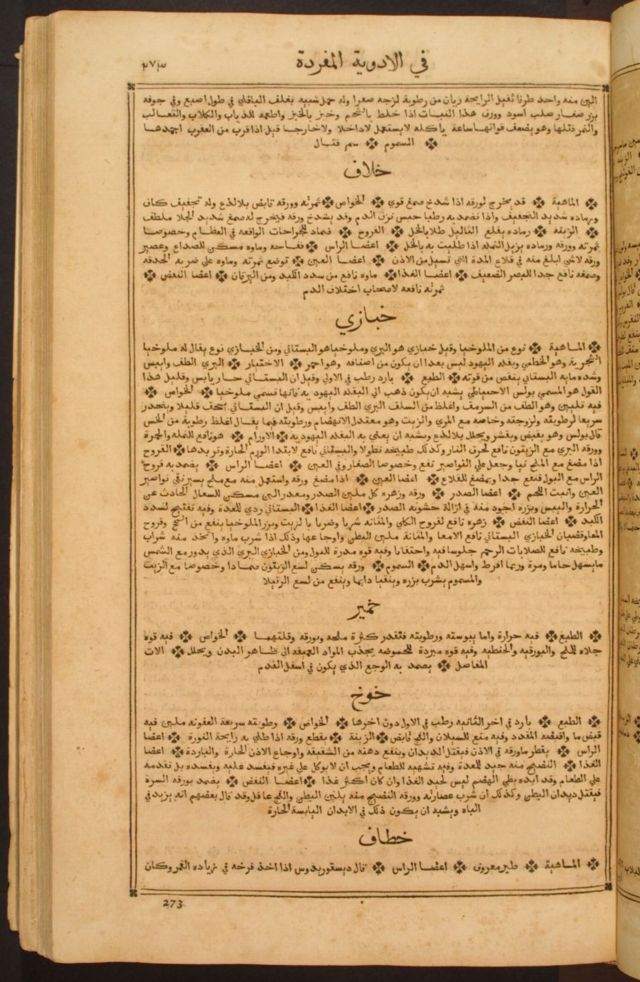 في الادوية المفردة
٢٧٣
الين منه واحد طرفا ثقيل الرايحة ريان من رطوبة لزجه صفرا وله حمل شبيه بغلف الباقلي في طول اصبع وفي جوفه
بزر صغار صلب اسود وورق هذا النبات اذا خلط بالشحم وخبز بالخبز واطعمه للدياب والكلاب والثعالب
والنمر قتلها وهو يضعف قواتها ساعة ياكله لا يستعمل لا داخلا ولا خارجا قيل اذا قرب من العقرب اجمدها
السموم سم قتال
خلاف
الماهية قد يخرج لورقه اذا شدخ صمغ قوي الخواص ثمرته وورقه قابض بلا لذع وله تجفيف كان
ورماده شديد التجفيف واذا تضمد به رطبا حبس نزف الدم وقد يشدخ ورقه فيخرج له صمغ شديد الجلا ملطف
الزينة رماده يقلع الثاليل طلا بالخل القروح ضماد للجراحات الواقعه في العظام وخصوصا
ثمرته وورقه ورماده يزيل النمله اذا طليت به بالخل اعضا الراس فقاحه وماوه مسكن للصداع وعصير
ورقه لا شي ابلغ منه في قلاع المدة التي تسيل من الاذن اعضا العين توضع ثمرته وماوه علي ضربه الحدقه
وصمغه نافع جدا للبصر الضعيف اعضا الغذا ماه نافع من سدد الكبد ومن اليرقان اعضا النفض
ثمرته نافعه لاصحاب اختلاف الدم
خبازي
الماهية نوع من الملوخيا وقيل خبازي هو البري وملوخيا هو البستاني ومن الخبازي نوع يقال له ملوخيا
الشجرية وهو الخطمي وبقله اليهود ليس بعدا ان يكون من اصنافه وهو احمر الاختيار البري الطف وايبس
وشده مايه البستاني ينقص من قوته الطبع بارد رطب في الاولي وقيل ان البستاني حار يابس وقليل هذا
القول هو المسمي بولس يشبه ان يكون ذهب الي البقله اليهود يه فانها تسمي ملوخيا الخواص
فيه تليين وهو الطف من السرمف واغلظ من السلف البري الطف وايبس وقيل ان البستاني اسخف قليلا وينحدر
سريعا لرطوبته ولزوجته وخاصه مع المري والزيت وهو معتدل الانهضام ورطوبته فيما يقال اغلظ رطوبة من الخس
قال بولس وهو يقبض ويقشر ويحلل بلا لذع ويشبه ان يعني به البقله اليهوديه الاورام هو نافع للنمله والحمرة
وورقه البري مع الزيتون نافع لحرف النار وكذلك طبيخه نطولا والبستاني نافع لابتدا الورم الحارة وتزيدها القروح
اذا مضغ مع الملح نيا وجعل علي النواصير نفع وخصوصا الصغار وفي العين اعضا الراس يضمد به قروح
الراس مع البول فينفع جدا ويمضغ للقلاع اعضا العين اذا مضغ ورقه واستعمل منه مع ملح يسير نقي نواصير
العين وانبت اللحم اعضا الصدر ورقه وزهره كل ملين الصدر ومدر للبن مسكن للسعال الحادث عن
الحرارة واليبس وبزره اجود منه في ازالة خشونه الصدر اعضا الغذا البستاني ردي للمعدة وفيه تفتيح لسدد
الكبد اعضا النفض زهره نافع لقروح الكلي والمثانه شربا وضربا با لزيت وبزر الملوخيا ينفع من السحج وقروح
المعا وقضبان الخبازي البستاني نافع الامعا والمثانة ملين البطن واوجاعها وكذلك اذا شرب ماوه واتخذ منه شراب
وطبيخه نافع لصلابات الرحم جلوسا فيه واحتقانا وفيه قوة مدرة للبول ومن الخبازي البري الذي يدور مع الشمس
ما يسهل خاما ومرة وربما افرط واسهل الدم السموم ورقه يسكن لسع الزنبور ضمادا وخصوصا مع الزيت
والمسموم يشرب بزره ويتقيا دايما وينفع من لسع الرتيلا
خمير
الطبع فيه حرارة واما يبوسته ورطوبته فتقدر كثرة ملحه وبورقه وقلتهما الخواص فيه قوه
جلاه للملح والبورقيه والحنطيه وفيه قوه مبردة للحموضه يجذب المواد العميقه الي ظاهر البدن ويحلل الات
المفاصل يضمد به الوجع الذي يكون في اسفل القدم
خوخ
الطبع بارد في اخر الثانيه رطب في الاول دون اخرها الخواص رطوبته سريعة العفونه ملين فيه
قبض ما واقبضه المقدد وفيه منع للسيلان والفج قابض الزينة يقطع ورقه اذا طلي به رايحة النورة اعضا
الراس يقطر ما ورقه في الاذن فيقتل الديدان وينفع دهنه من الشقيقه واوجاع الاذن الحارة والباردة اعضا
الغذا النضيج منه جيد للمعدة وفيه تشهيه للطعام ويجب ان لا يوكل علي غيره فيفسد عليه ويفسده بل تقدمه
علي الطعام وقديده بطي الهضم ليس لجيد الغذا وان كان اكثر غذا اعضا النفض يضمد بورقه السرة
فيقتل ديدان البطن وكذلك ان شرب عصارته وورقه النضيج منه يلين البطن والفج عاقل وقد قال بعضهم انه يزيد في
الباه ويشبه ان يكون ذلك في الابدان اليابسة الحارة
خطاف
الماهية طير معروف اعضا الراس قال ديسقوريدوس اذا اخذ فرخه في زيادة القمر وكان
273